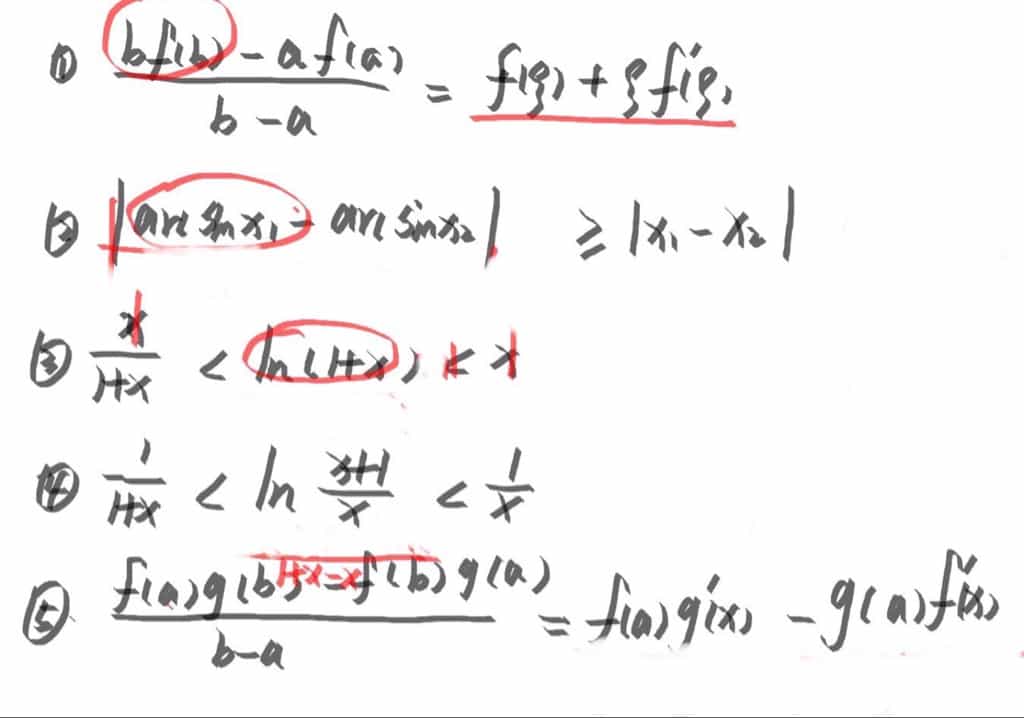 ① (bf(b) - af(a))/(b - a) = f(ξ) + ξf'(ξ)
② |arcsinx₁ - arcsinx₂| ≥ |x₁ - x₂|
③ x/(1+x) < ln(1+x) < x
④ 1/(1+x) < ln (x+1)/x < 1/x
1+x-x
⑤ (f(a)g(b) - f(b)g(a))/(b-a) = f(a)g'(x) - g(a)f'(x)